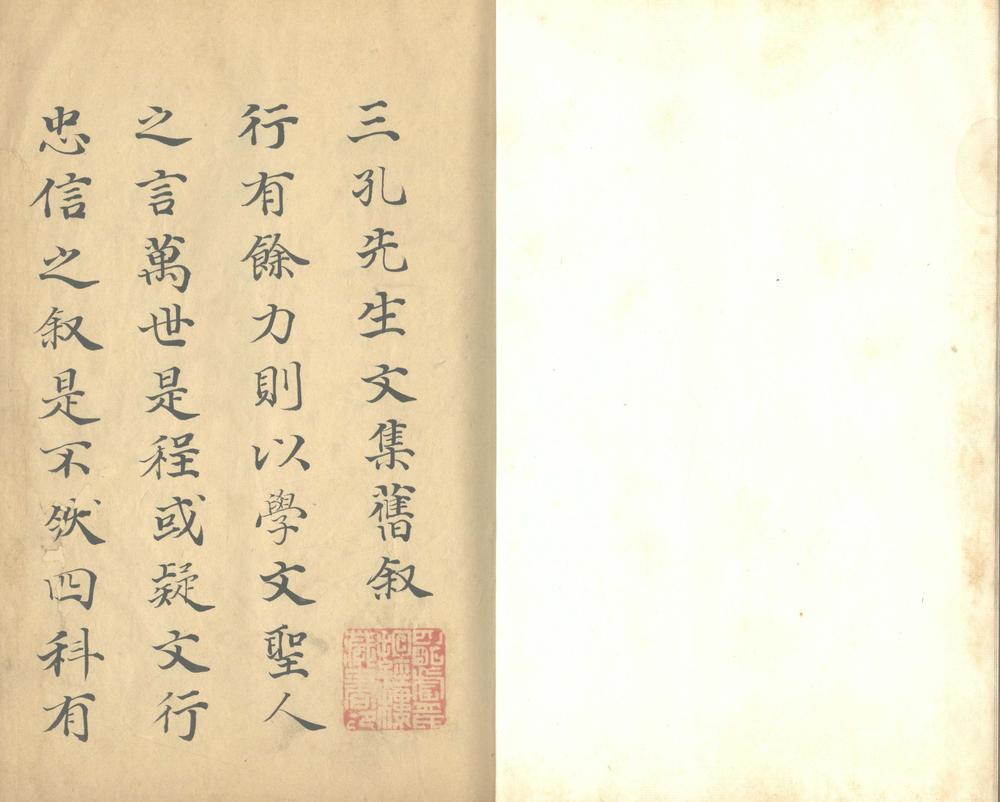 三孔先生文集舊叙
行有餘力則以學文聖人
之言萬世是程或疑文行
忠信之叙是不然四科有